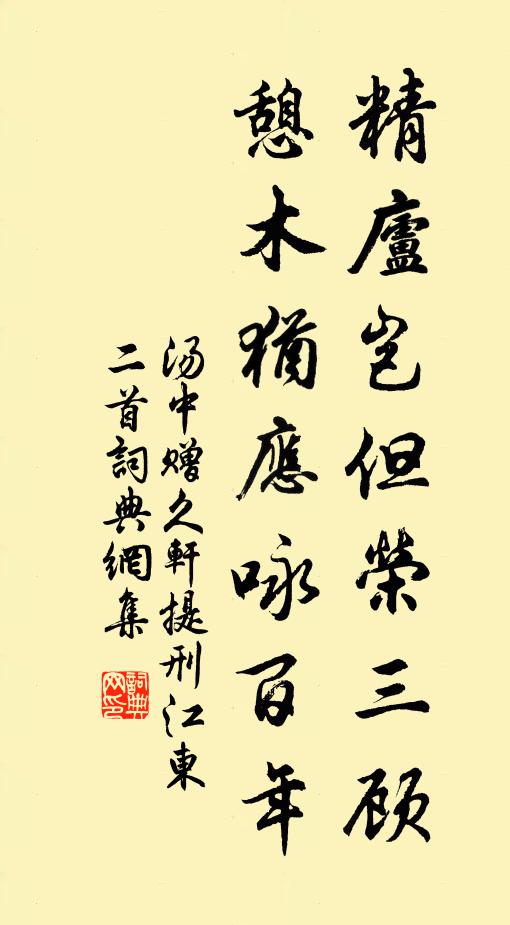 精廬豈但榮三顾
憩木猶應咏百年
汤中赠久軒提刑江東
二首詞典網集
詞典网印